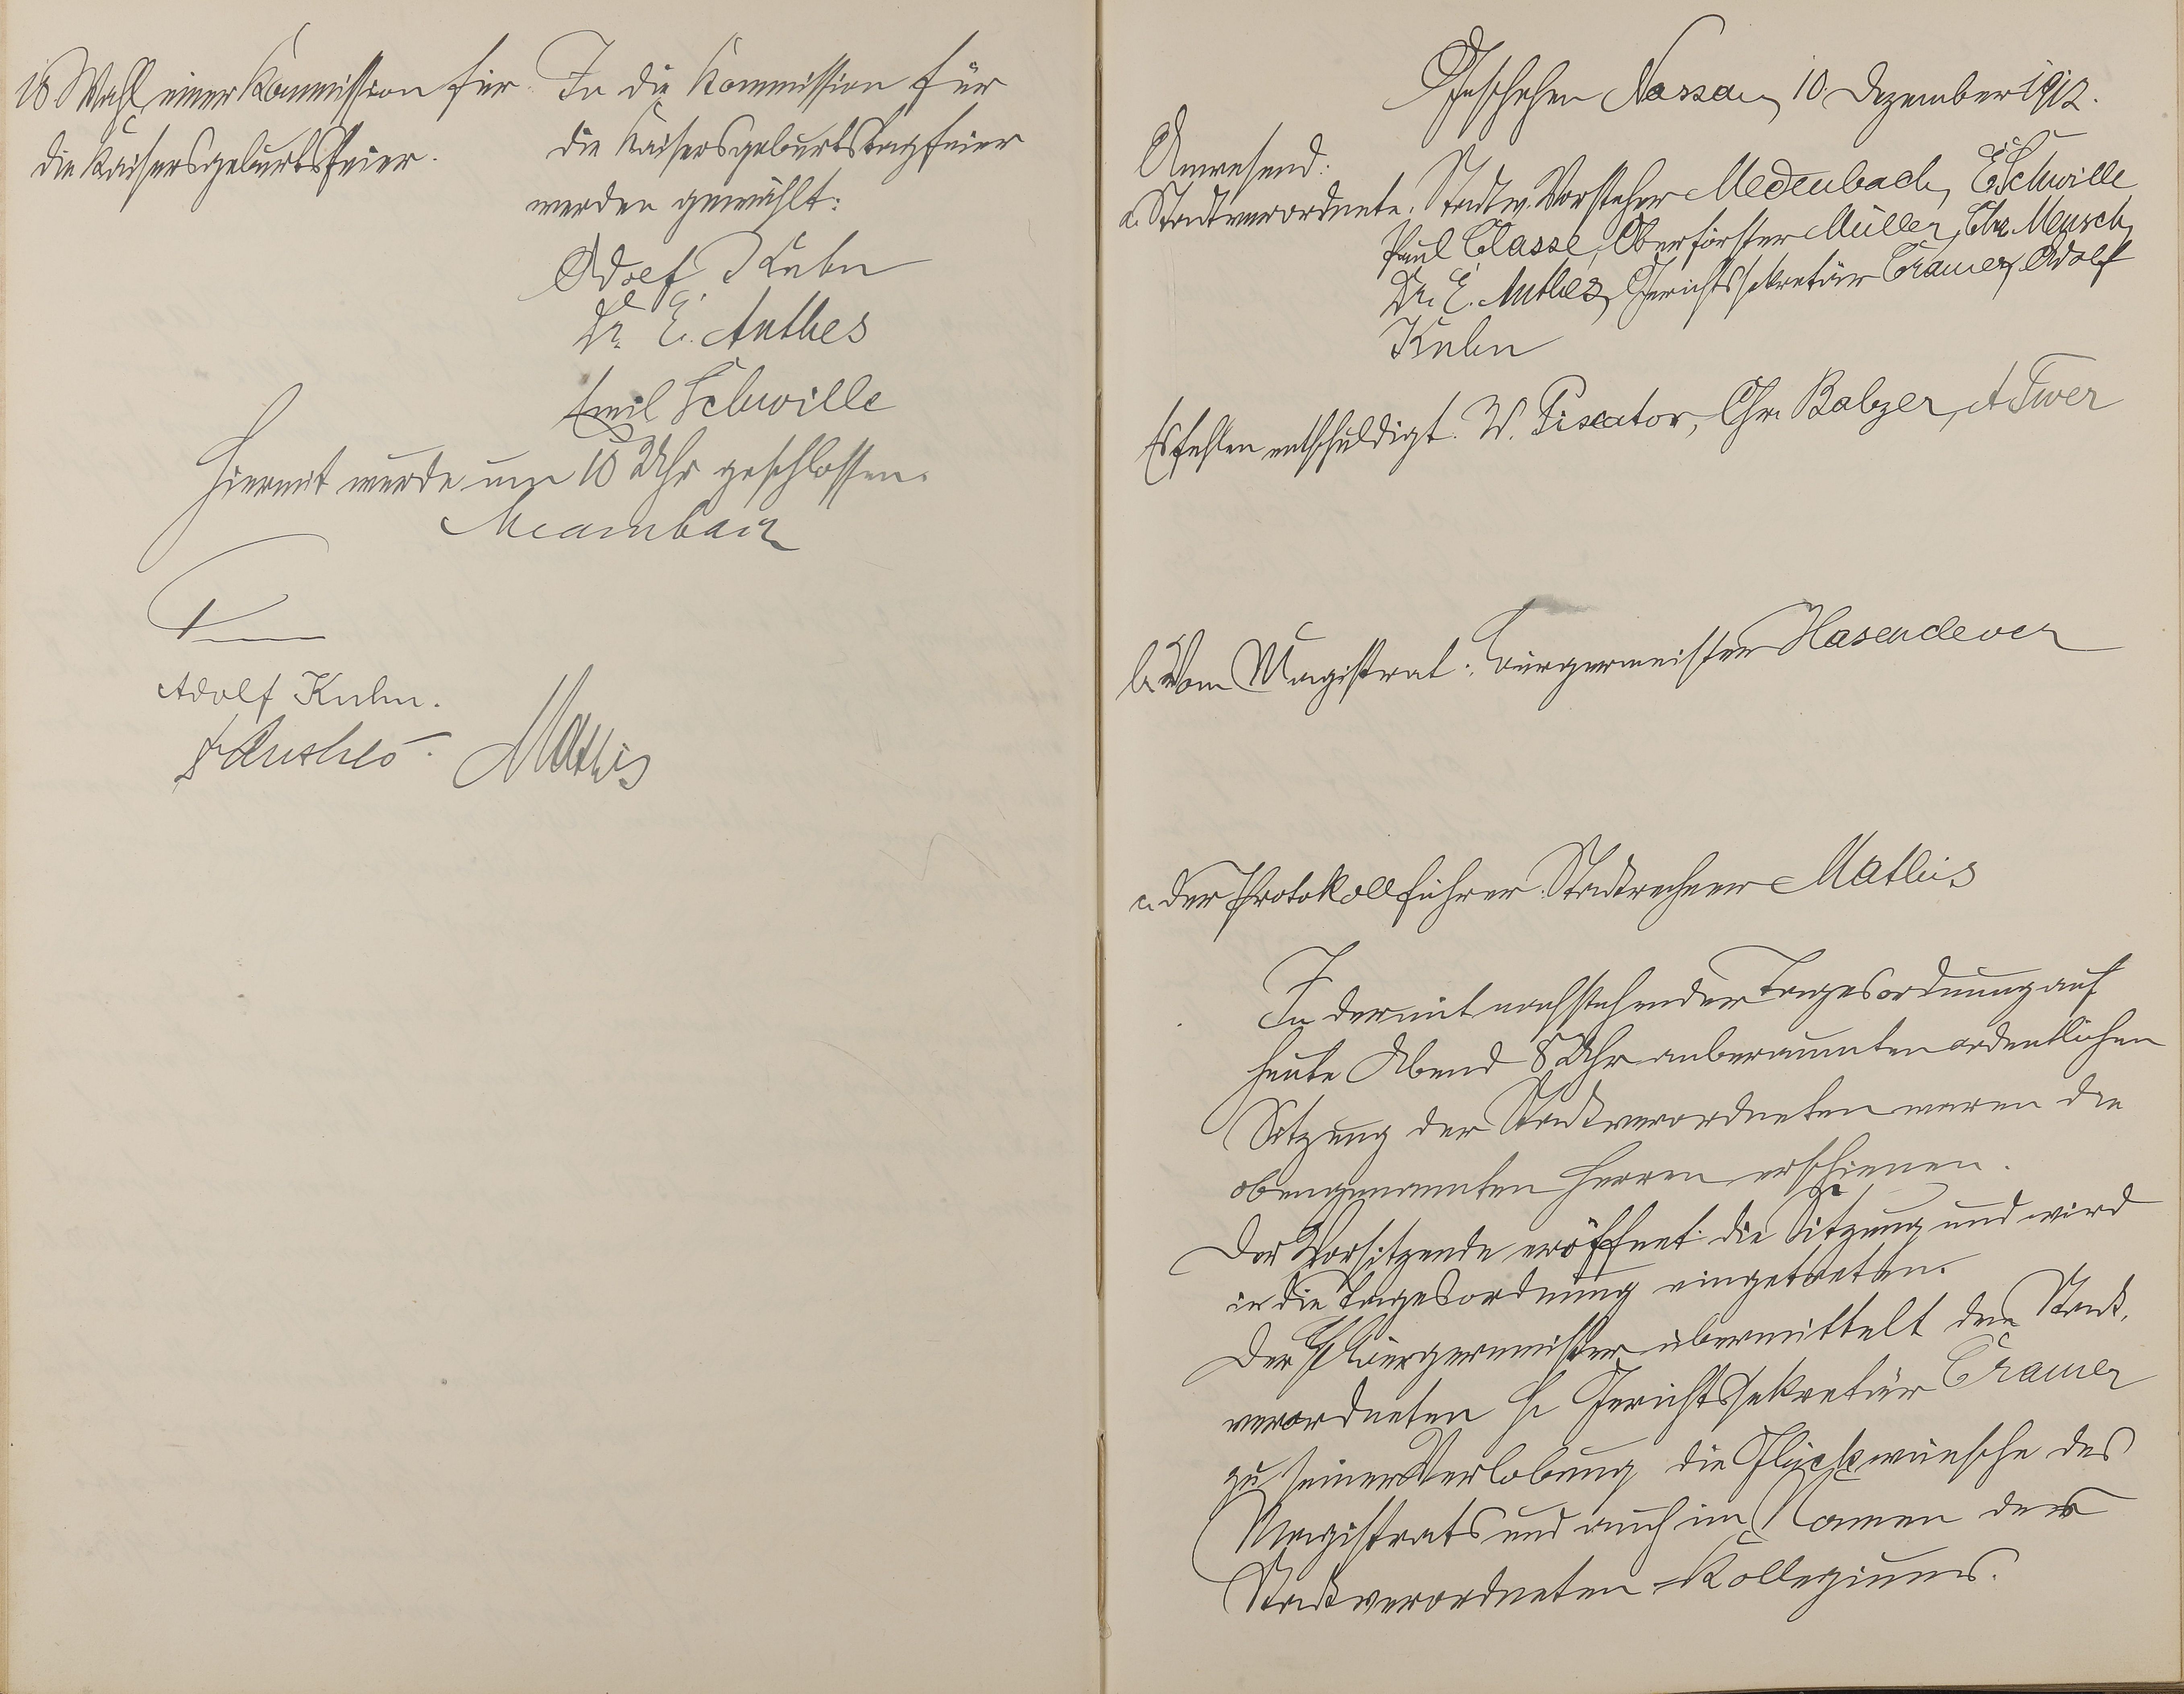 10 Wahl einer Kommission für
die Kaisersgeburtsfeier.
In die Kommission für
die Kaisersgeburtstagfeier
werden gewählt:
Adolf Kuhn
Dr. E. Anthes
Emil Schwille
Hiermit wurde um 10 Uhr geschlossen.
Medenbach
Adolf Kuhn.
Dr Anthes.
Mathis
Geschehen Nassau, 10. Dezember 1912.
Anwesend:
a. Stadtverordnete: Stadtv. Vorsteher Medenbach, E Schwille
Paul Classe, Oberförster Müller, Chr. Meusch,
Dr. E. Anthes, Gerichtssekretär Cramer, Adolf
Kuhn
Es fehlen entschuldigt: W. Piscator, Chr. Balzer, A
b. Vom Magistrat: Bürgermeister Hasenclever
c. der Protokollführer: Stadtrechner Mathis
In der mit nachstehender Tagesordnung auf
heute Abend 8 Uhr anberaumten ordentlichen
Sitzung der Stadtverordneten waren die
obengenannten Herren erschienen.
Der Vorsitzende eröffnet die Sitzung und wird
in die Tagesordnung eingetreten.
Der H Bürgermeister übermittelt dem Stadt-
verordneten H. Gerichtssekretär Cramer
zu seiner Verlobung die Glückwünsche des
Magistrats und auch im Namen des
Stadtverordneten-Kollegiums.